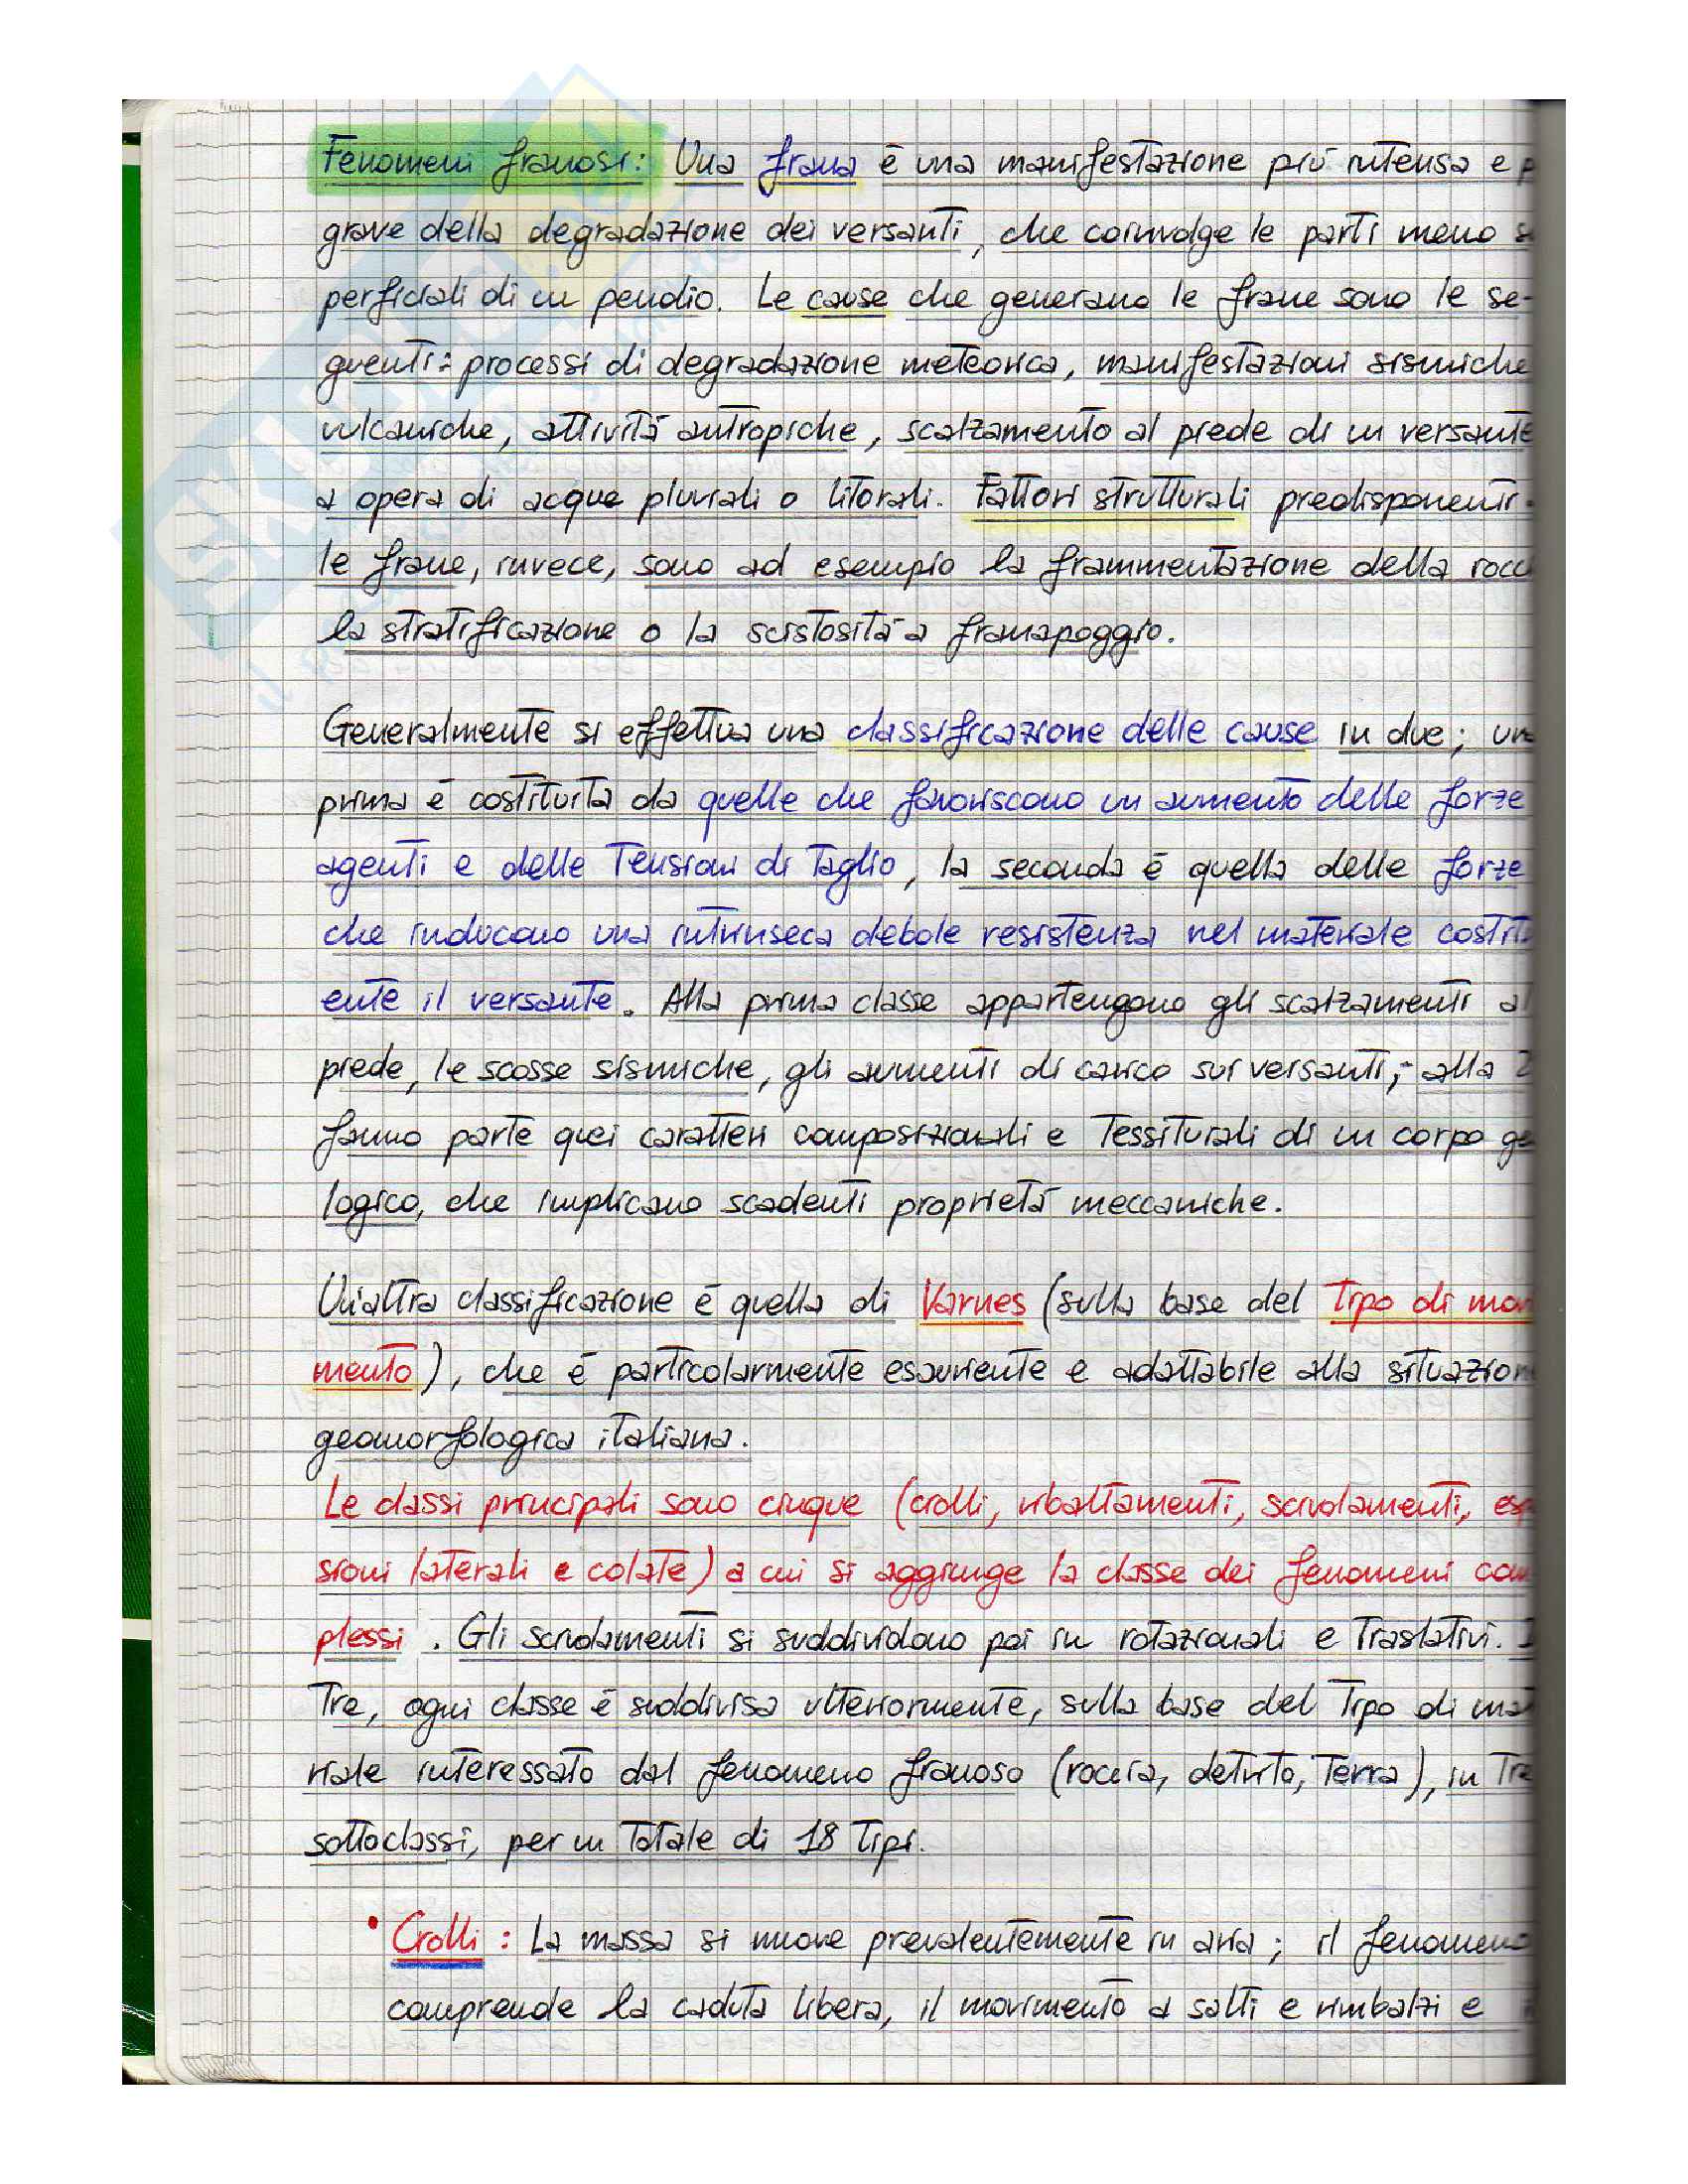 Fenomeni franosi: Una frana è una manifestazione più intensa e p
grave della degradazione dei versanti, che coinvolge le parti meno s
perficiali di un pendio. Le cause che generano le frane sono le se-
guenti: processi di degradazione meteorica, manifestazioni sismiche
vulcaniche, attività antropiche, scalzamento al piede di un versante
a opera di acque pluviali o litorali. Fattori strutturali predisponenti
le frane, invece, sono ad esempio la frammentazione della rocc
la stratificazione o la scistosità a franapoggio.
Generalmente si effettua una classificazione delle cause in due; una
prima è costituita da quelle che favoriscono un aumento delle forze
agenti e delle tensioni di taglio, la seconda è quella delle forze
che inducono una intrinseca debole resistenza nel materiale costitu
ente il versante. Alla prima classe appartengono gli scalzamenti al
piede, le scosse sismiche, gli aumenti di carico sui versanti; alla 2
fanno parte quei caratteri composizionali e tessiturali di un corpo ge
logico, che implicano scadenti proprietà meccaniche.
Un'altra classificazione è quella di Varnes (sulla base del tipo di mov
mento), che è particolarmente esauriente e adattabile alla situazion
geomorfologica italiana.
Le classi principali sono cinque (crolli, ribaltamenti, scivolamenti, esp
sioni laterali e colate) a cui si aggiunge la classe dei fenomeni com
plessi. Gli scivolamenti si suddividono poi in rotazionali e traslativi. I
tre, ogni classe è suddivisa ulteriormente, sulla base del tipo di mat
riale interessato dal fenomeno franoso (roccia, detrito, terra), in tre
sottoclassi, per un totale di 18 tipi.
• Crolli: La massa si muove prevalentemente in aria; il fenomeno
comprende la caduta libera, il movimento a salti e rimbalzi e i